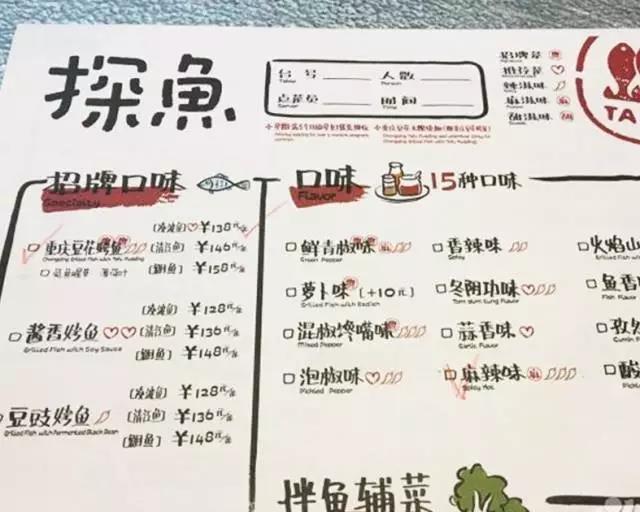 探魚
台号 人数
Table Person
点菜员 时间
招牌菜
推荐菜
辣滋味
麻滋味 麻
甜滋味
TA
招牌口味
Specialty
(清江鱼) ¥146元/条
重庆豆花烤鱼
Chongqing Grilled Fish with Tofu Pudding
¥138元/条
(鮰鱼) ¥158元/条
¥128元/条
酱香烤鱼 (清江鱼) ¥136元/条
Grilled Fish with Soy Sauce
(鮰鱼) ¥148元/条
¥128元/条
豆豉烤鱼 (清江鱼) ¥136元/条
Grilled Fish with Fermented Black Bean
(鮰鱼) ¥148元/条
口味 15种口味
Flavor
鲜青椒味 麻 香辣味 火焰山
Green Pepper Spicy
萝卜味 (+10元) 冬阴功味 鱼香
Grilled Fish with Radish Tom Yum Kung Flavor
混椒馋嘴味 蒜香味 孜
Mixed Pepper Garlic Flavor Cumin
泡椒味 麻辣味 麻 酸
Pickled Pepper Spicy Hot Pickled
拌鱼辅菜